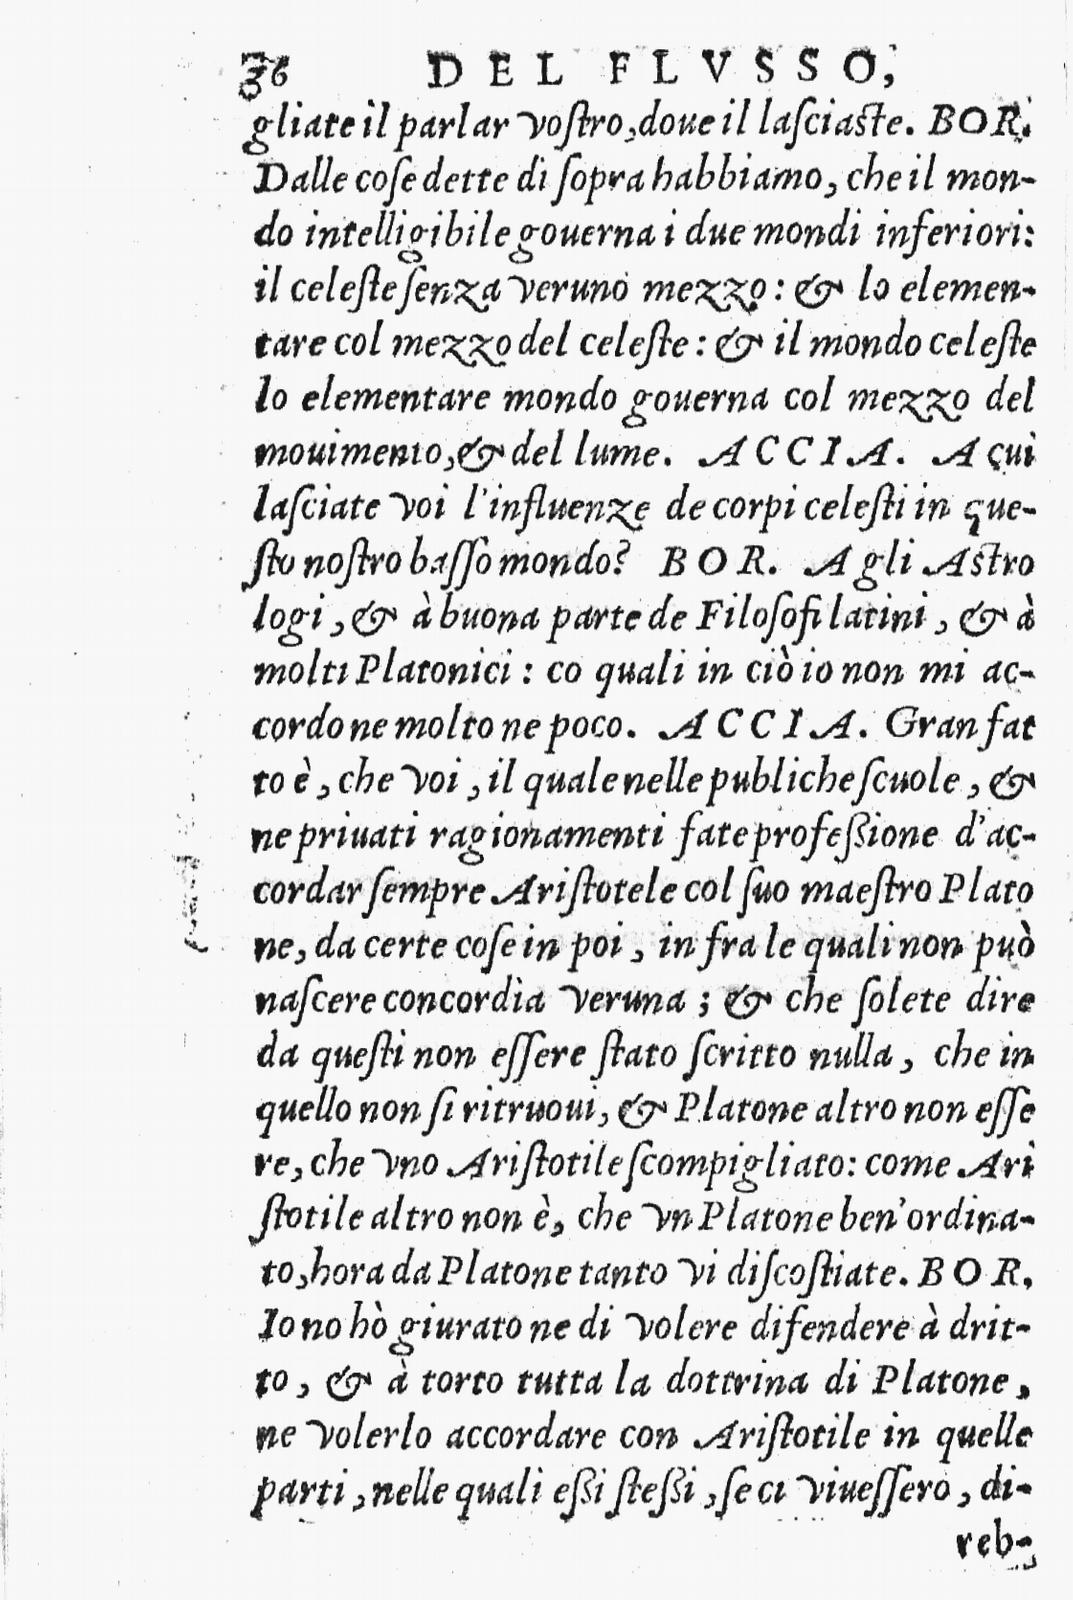 36 DEL FLVSSO,
gliate il parlar voſtro, doue il laſciaſte. BOR.
Dalle coſe dette di ſopra habbiamo, che il mon-
do intelligibile gouerna i due mondi inferiori:
il celeſte ſenza veruno mezzo: & lo elemen-
tare col mezzo del celeſte: & il mondo celeſte
lo elementare mondo gouerna col mezzo del
mouimento, & del lume. ACCIA. A qui
laſciate voi l'influenze de corpi celeſti in que-
ſto noſtro baſſo mondo? BOR. A gli Aſtro
logi, & à buona parte de Filoſofi latini, & à
molti Platonici: co quali in ciò io non mi ac-
cordo ne molto ne poco. ACCIA. Gran fat
to è, che voi, il quale nelle publiche ſcuole, &
ne priuati ragionamenti fate profeßione d'ac-
cordar ſempre Ariſtotele col ſuo maeſtro Plato
ne, da certe coſe in poi, in fra le quali non può
naſcere concordia veruna; & che ſolete dire
da queſti non eſſere ſtato ſcritto nulla, che in
quello non ſi ritruoui, & Platone altro non eſſe
re, che vno Ariſtotile ſcompigliato: come Ari
ſtotile altro non è, che vn Platone ben'ordina-
to, hora da Platone tanto vi diſcoſtiate. BOR.
Io no hò giurato ne di volere difendere à drit-
to, & à torto tutta la dottrina di Platone,
ne volerlo accordare con Ariſtotile in quelle
parti, nelle quali eßi ſteßi, ſe ci viueſſero, di-
reb-